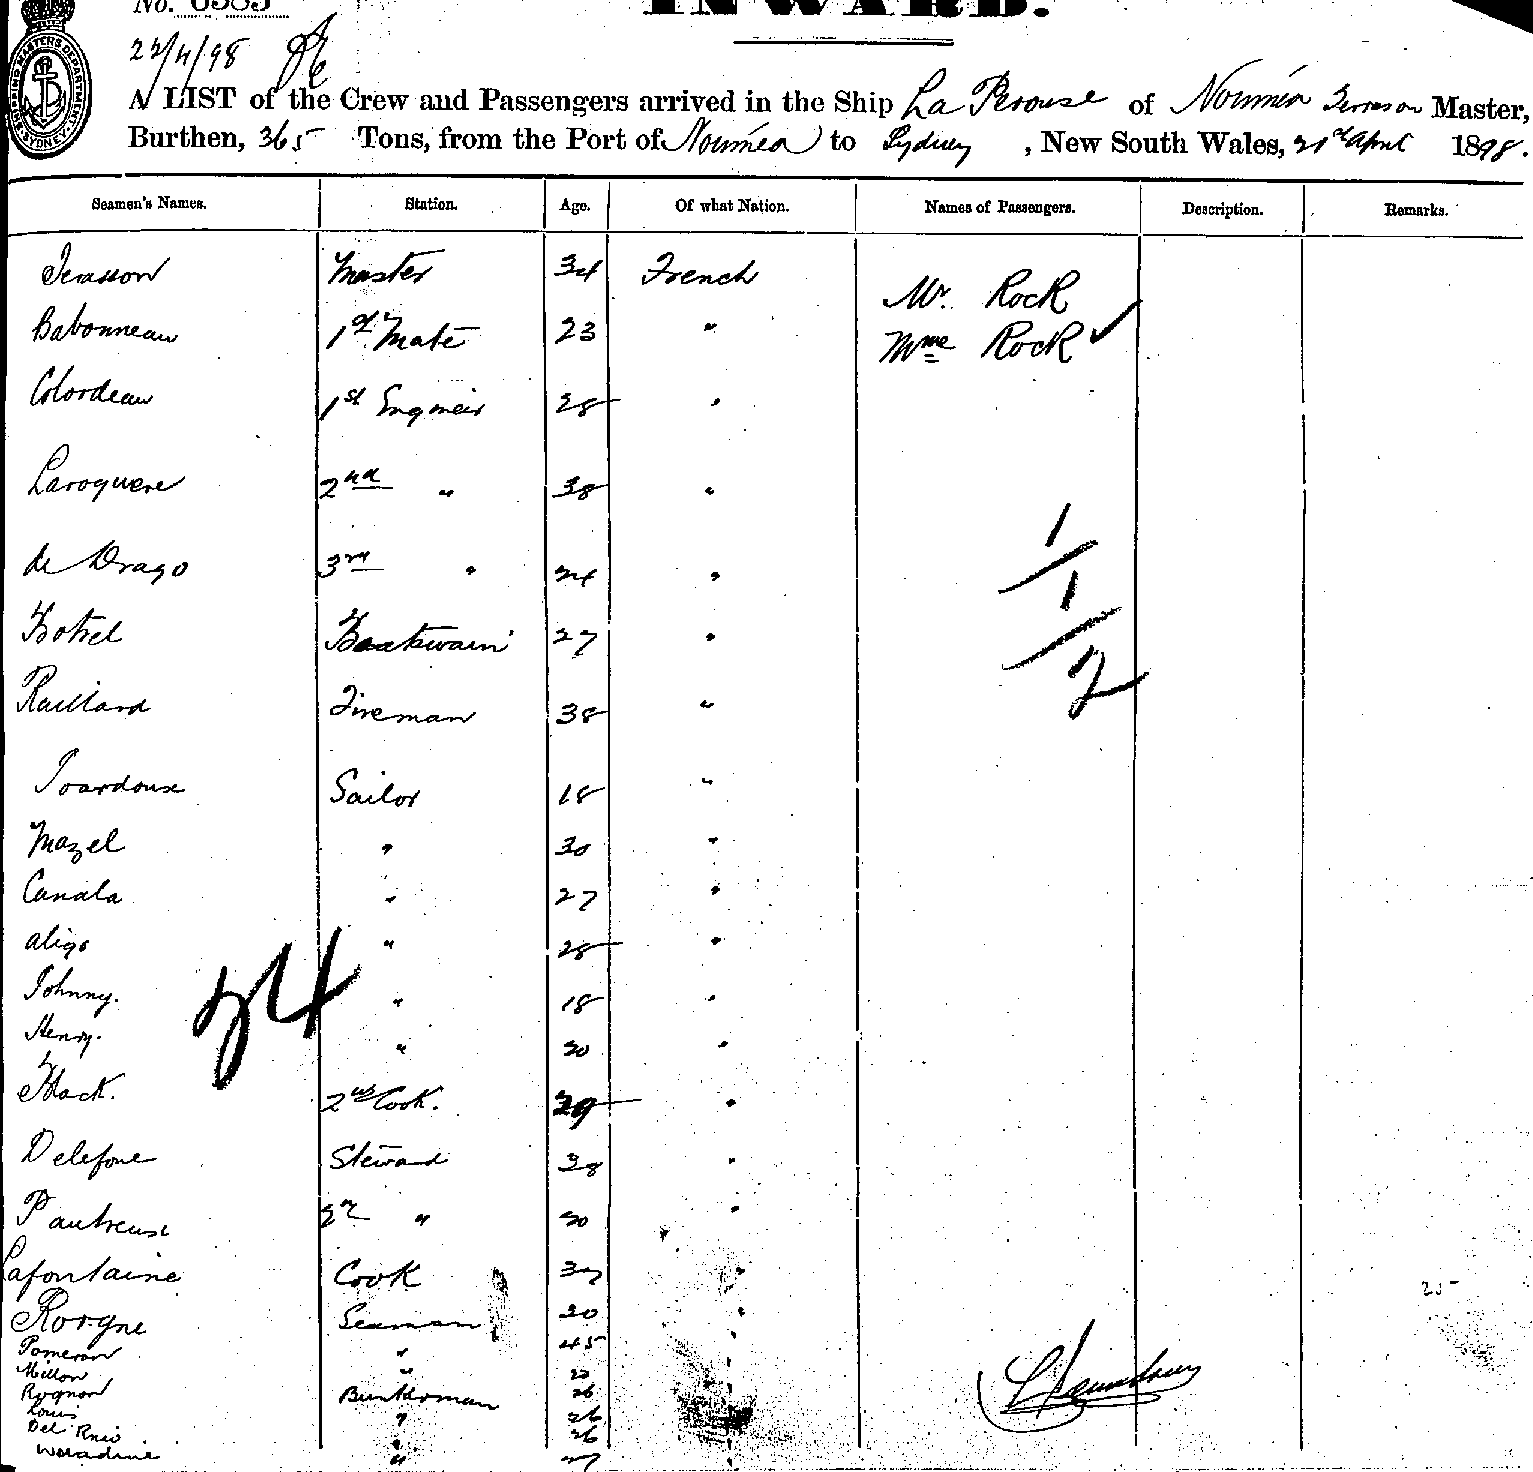 No. 6585
INWARD.
22/4/98
SHIPPING MASTER'S DEPARTMENT SYDNEY
A LIST of the Crew and Passengers arrived in the Ship La Perouse of Nouméa Terrasson Master,
Burthen, 365 Tons, from the Port of Nouméa to Sydney, New South Wales, 21st April 1898.
Seamen's Names. Station. Age. Of what Nation. Names of Passengers. Description. Remarks.
Terasson Master 34 French Mr. Rock
Babonneau 1st Mate 23 " Mme Rock
Colordeau 1st Engineer 28 "
Laroquere 2nd " 38 "
de Drago 3rd " 24 "
Botrel Boatswain 27 "
Raillard Fireman 38 "
Tourdoux Sailor 18 "
Mazel " 30 "
Canala " 27 "
aligo " 28 "
Johnny. " 18 "
Henry. " 20 "
Black. 2nd Cook. 29 "
Delefone Steward 38 "
Pautreux 2d " 20 "
Lafontaine Cook 37 "
Rorgne Seaman 20 "
Pomeron " 45 "
Millon " 22 "
Rognon Bunkerman 26 "
Louis " 26 "
Del Rnio " 26 "
Woradine " 27 "
24
1
1
2